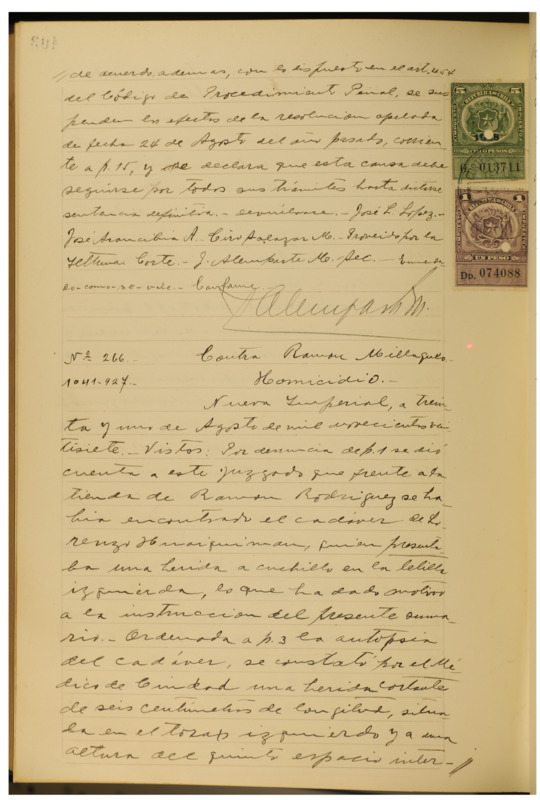 de acuerdo ademas, con lo dispuesto en el art.
del Código de Procedimiento Penal, se sus
penden los efectos de la resolucion apelada
de fecha 24 de Agosto del año pasado, corrien
te a p. 15, y se declara que esta causa debe
seguirse por todos sus trámites hasta dictarse
sentencia definitiva.- devuélvase.- José L. Lopez.-
José Arancibia A. Ciro Salazar M.- Proveido por la
Iltma. Corte.- J. Alemparte M. Sec.- Enmenda
do-como-se-vale.- Conforme
Alemparte M.
5
5
CINCO PESOS
013711
1
1
UN PESO
Dp. 074088
Nº 266.
Contra Ramon
1041-927.-
Homicidio.-
Nueva Imperial, a trein
ta y uno de Agosto de mil novecientos vein
tisiete.- Vistos: Por denuncia de p. 1 se dió
cuenta a este Juzgado que frente a la
tienda de Ramon Rodriguez se ha
bia encontrado el cadáver de Lo
renzo Huaiquiman, quien presenta
ba una herida a cuchillo en la tetilla
izquierda, lo que ha dado motivo
a la instruccion del presente suma
rio.- Ordenada a p. 3 la autopsia
del cadáver, se constató por el Mé
dico de Ciudad una herida cortante
de seis centimetros de longitud, situa
da en el torax izquierdo y a una
altura del quinto espacio inter-